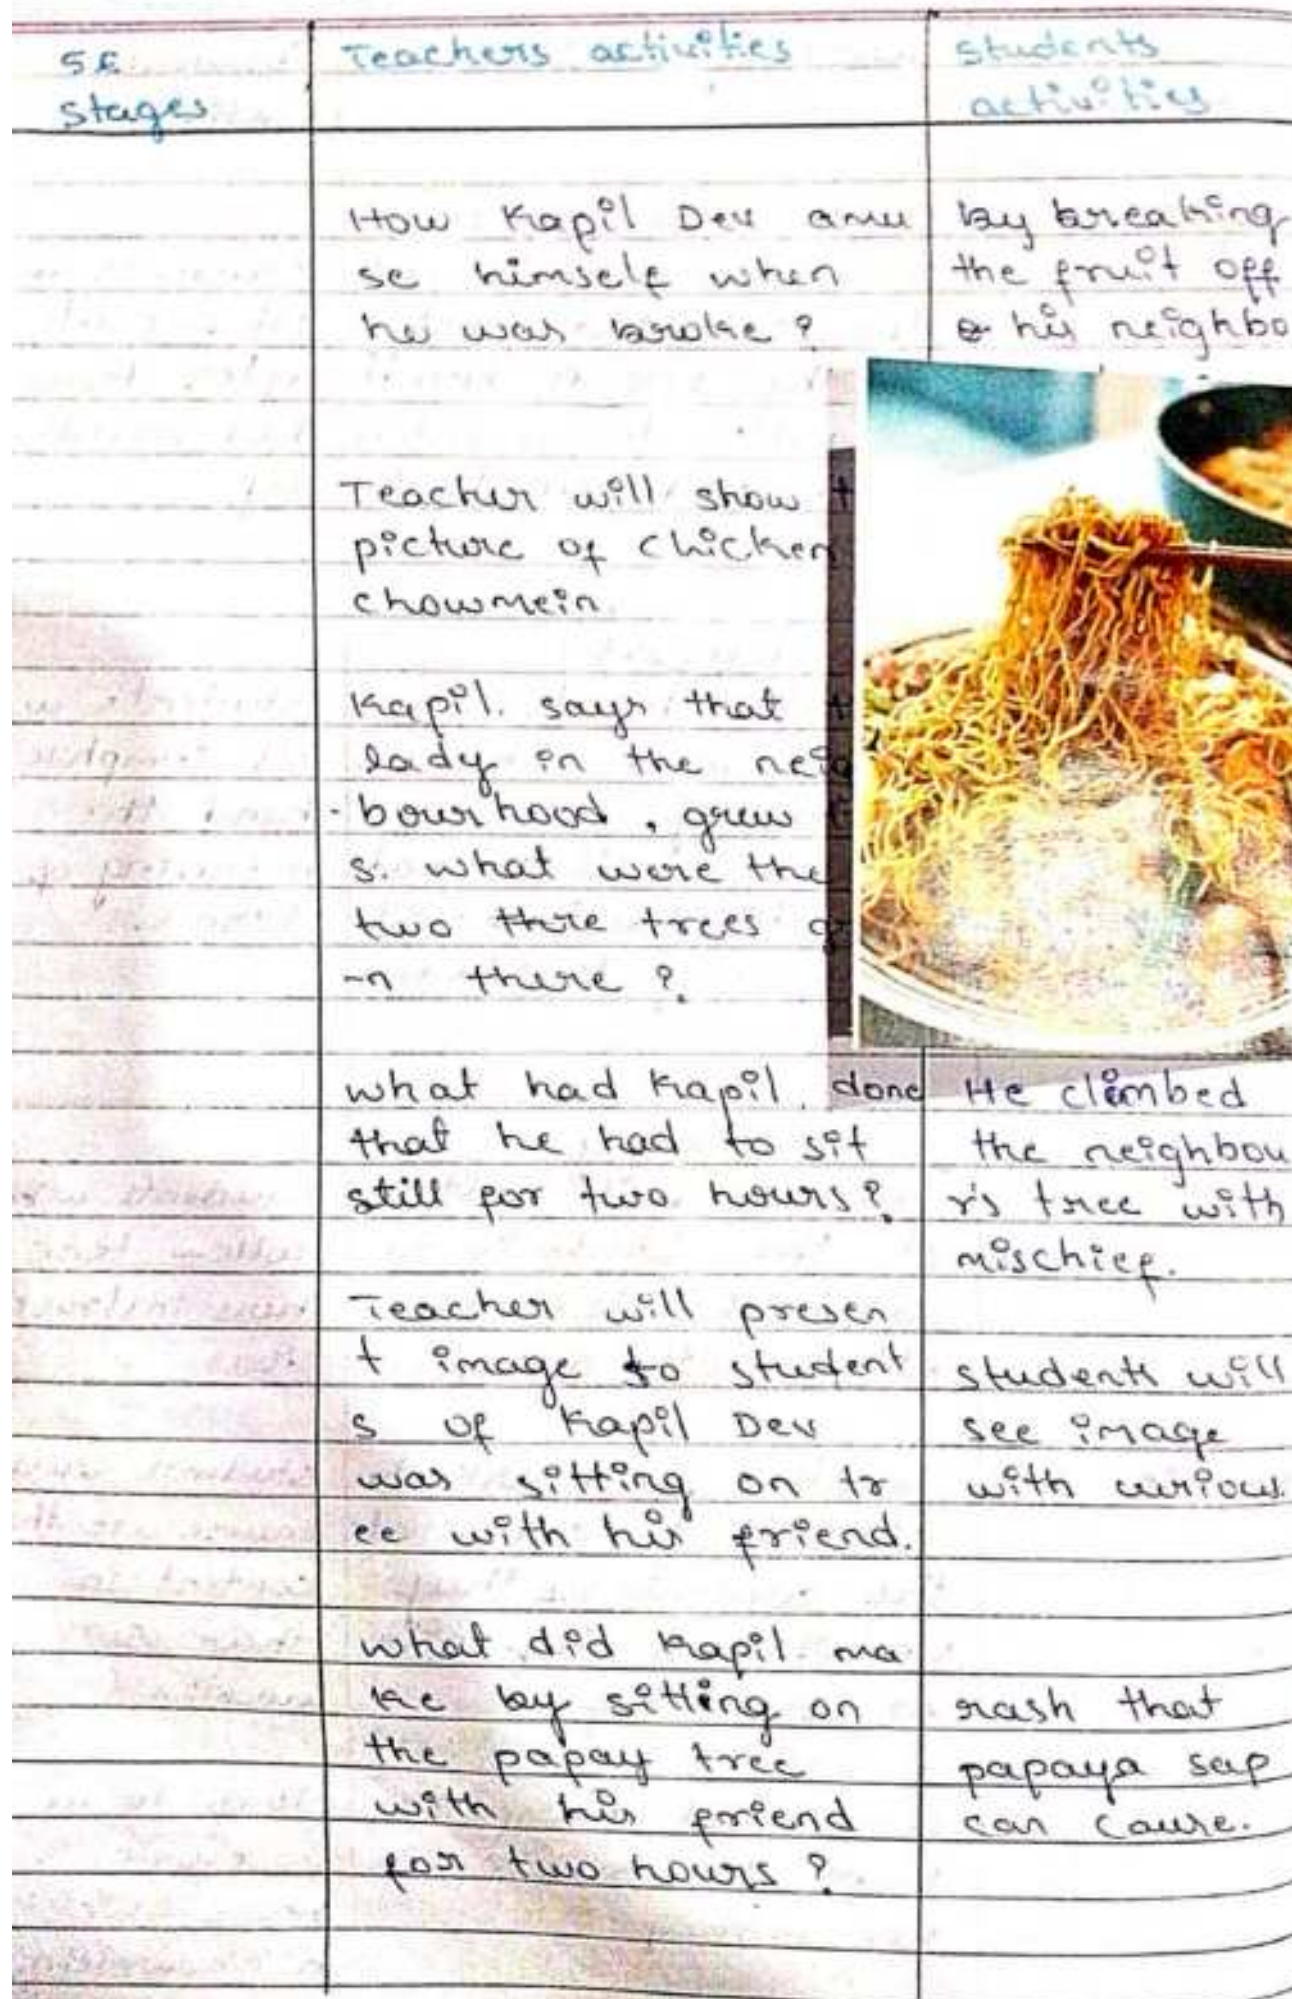 5E
stages
Teachers activities
students
activities
How Kapil Dev amu
se himself when
he was broke?
by breaking
the fruit off
his neighbo
Teacher will show t
picture of chicken
chowmein.
Kapil. says that t
lady in the neig
bourhood, grew t
s. what were the
two thre trees
-n there?
what had Kapil. done
that he had to sit
still for two hours?
He climbed
the neighbou
r's tree with
mischief.
Teacher will presen
t image to student
s of Kapil Dev
was sitting on tr
ee with his friend.
students will
see image
with curious.
what did Kapil ma
ke by sitting on
the papay tree
with his friend
for two hours?
rash that
papaya sap
can cause.